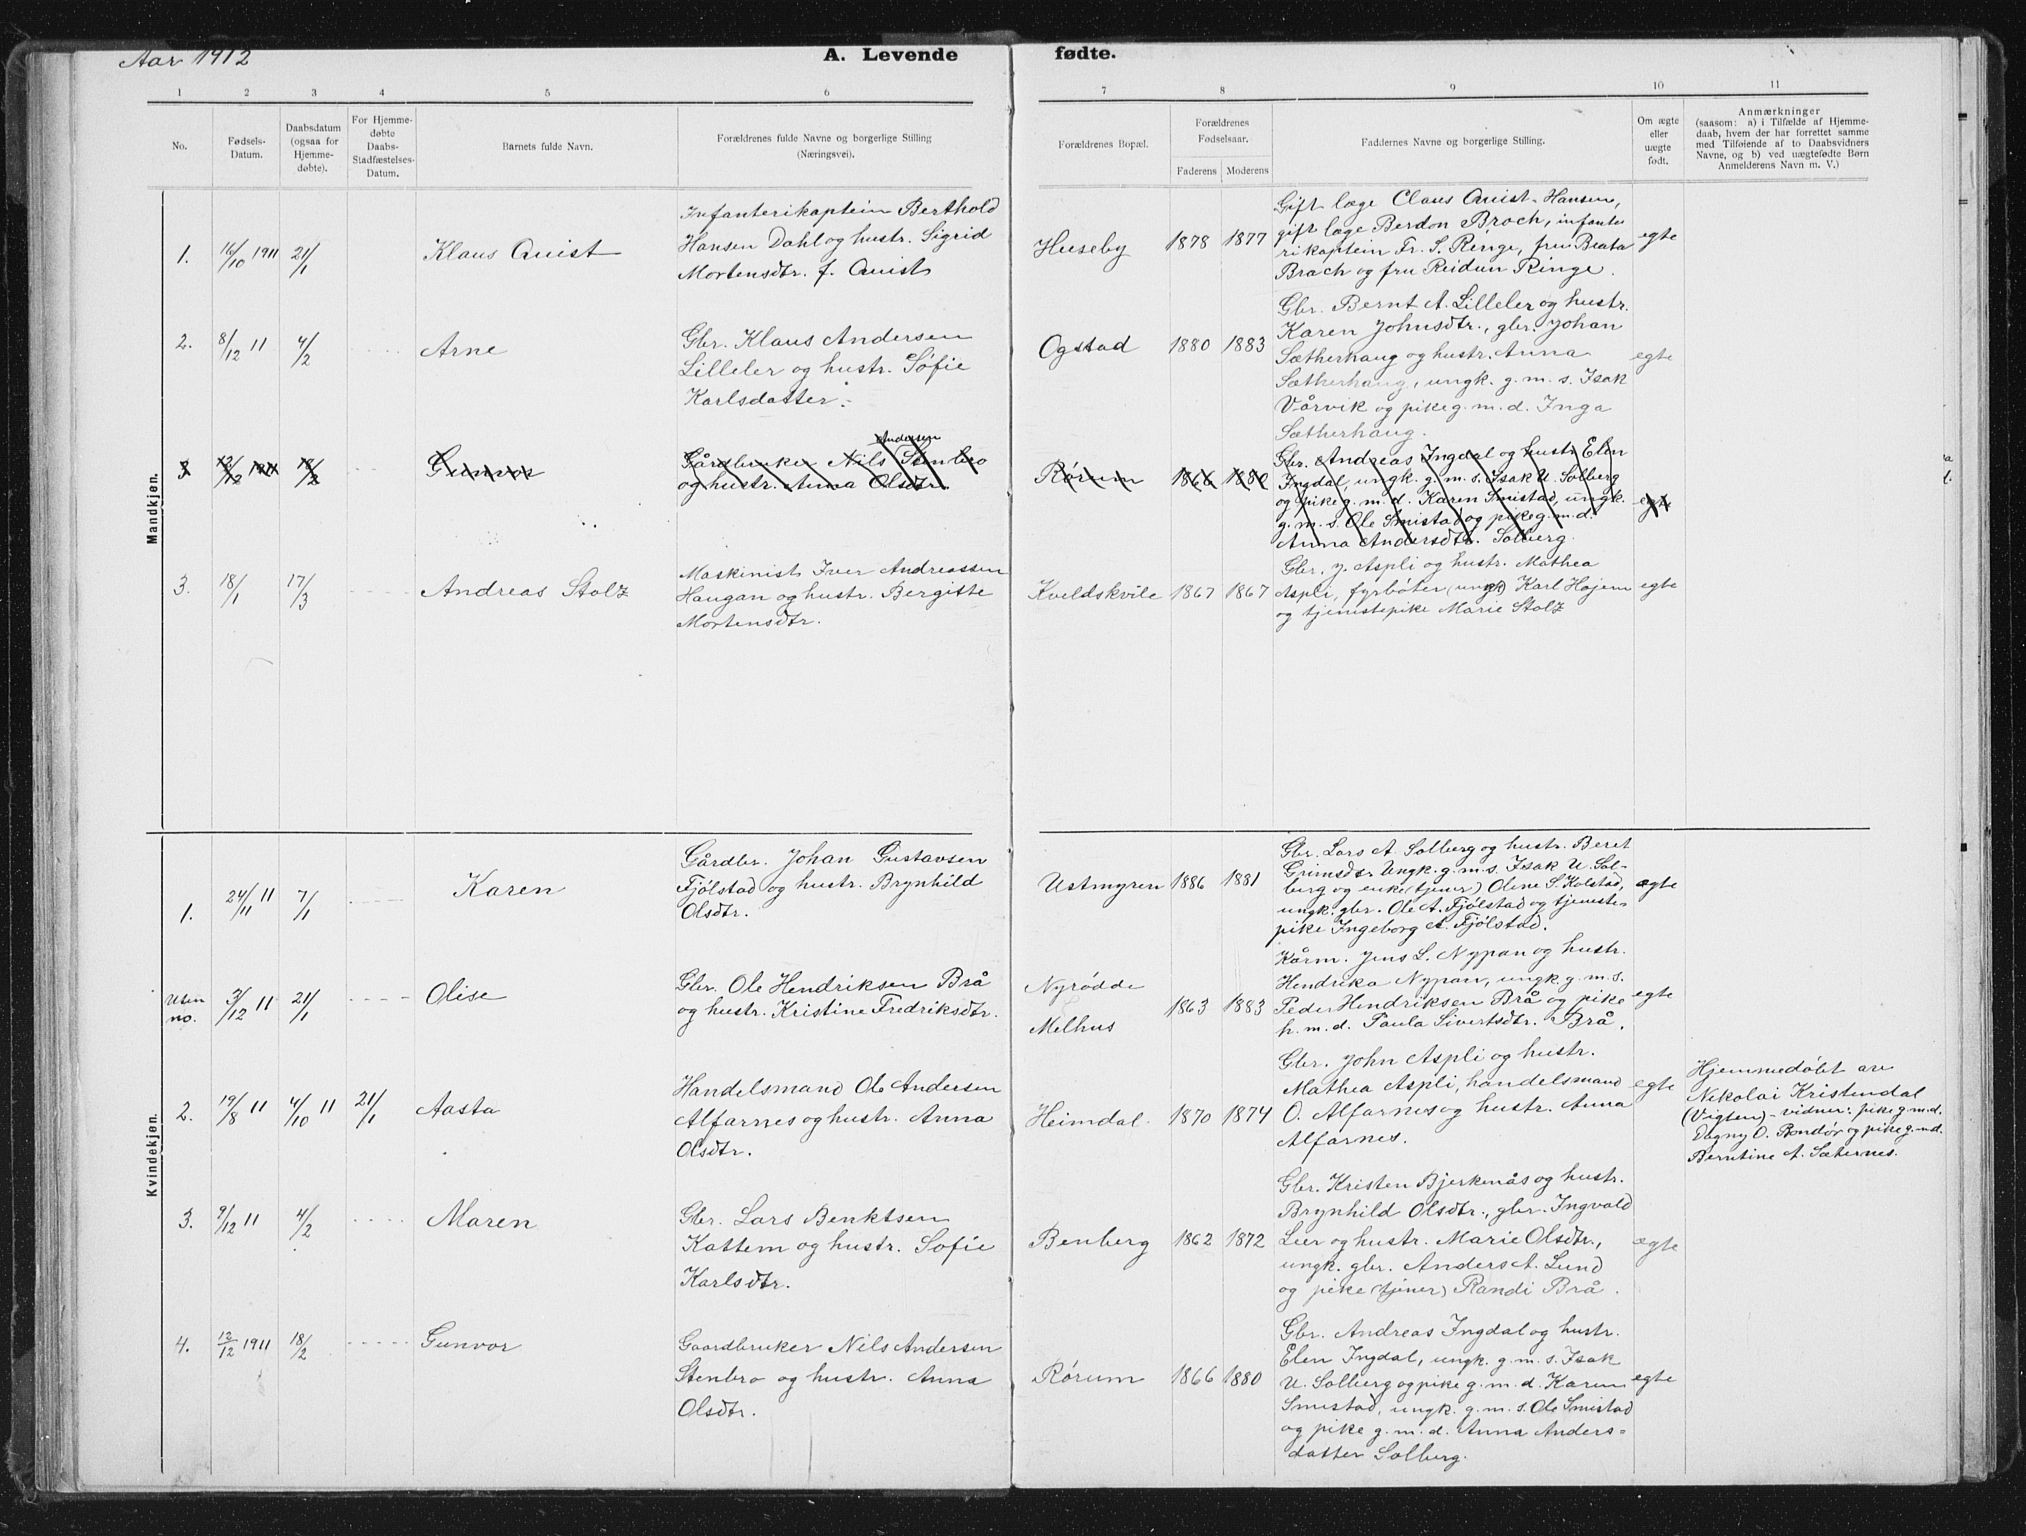 Aar 1912
A. Levende fødte.
1 2 3 4 5 6 7 8 9 10 11
No.
Fødsels-
Datum.
Daabsdatum
(ogsaa for
Hjemme-
døbte).
For Hjemme-
døbte
Daabs-
Stadfæstelses-
Datum.
Barnets fulde Navn.
Forældrenes fulde Navne og borgerlige Stilling
(Næringsvei).
Forældrenes Bopæl.
Forældrenes
Fødselsaar.
Faderens Moderens
Faddernes Navne og borgerlige Stilling.
Om ægte
eller
uægte
født.
Anmærkninger
(saasom: a) i Tilfælde af Hjemme-
daab, hvem der har forrettet samme
med Tilføiende af to Daabsvidners
Navne, og b) ved uægtefødte Børn
Anmelderens Navn m. V.)
Mandkjøn.
1. 16/10 1911 21/1
Klaus Quist
Infanterikaptein Berthold
Hansen Dahl og hustr. Sigrid
Mortensdtr. f. Quist
Huseby
1878 1877
Gift læge Claus Quist-Hansen,
gift læge Berdon Broch, infante
rikaptein Fr. S. Ringe, fru Beata
Broch og fru Reidun Ringe.
egte
2. 8/12 11 4/2
Arne
Gbr. Klaus Andersen
Lilleler og hustr. Sofie
Karlsdatter.
Ogstad
1880 1883
Gbr. Bernt A. Lilleler og hustr.
Karen Johnsdtr., gbr. Johan
Sætherhaug og hustr. Anna
Sætherhaug, ungk. g. m. s. Isak
Vårvik og pike g. m. d. Inga
Sætherhaug.
egte
3 12/12 1911 18/2
Gunvor
Andersen
Gårdbruker Nils Stenbro
og hustr. Anna Olsdtr.
Rørum
1866 1880
Gbr. Andreas Ingdal og hustr. Elen
Ingdal, ungk. g. m. s. Isak U. Solberg
og pike g. m. d. Karen Smistad, ungk.
g. m. s. Ole Smistad og pike g. m. d.
Anna Andersdtr. Solberg.
egte
3. 18/1 17/3
Andreas Stolz
Maskinist Iver Andreassen
Haugan og hustr. Bergitte
Mortensdtr.
Kveldskvile
1867 1867
Gbr. J. Aspli og hustr. Mathea
Aspli, fyrbøter (ungk) Karl Hojem
og tjenestepike Marie Stolz
egte
Kvindekjøn.
1. 24/11 11 7/1
Karen
Gårdbr. Johan Gustavsen
Fjölstad og hustr. Brynhild
Olsdtr.
Ustmyren
1886 1881
Gbr. Lars A. Solberg og hustr. Beret
Grimsdtr. Ungk. g. m. s. Isak U. Sol-
berg og enke (tjener) Oline S. Kolstad,
ungk. gbr. Ole A. Fjölstad og tjeneste-
pike Ingeborg A. Fjölstad.
ægte
Uten
no. 3/12 11 21/1
Olise
Gbr. Ole Hendriksen Brå
og hustr. Kristine Fredriksdtr.
Nyrødde
Melhus
1863 1883
Kårm. Jens L. Nypan og hustr.
Hendrika Nypan, ungk. g. m. s.
Peder Hendriksen Brå og pike
h. m. d. Paula Sivertsdtr. Brå.
egte
2. 19/8 11 4/10 11 21/1
Aasta
Handelsmand Ole Andersen
Alfarnes og hustr. Anna
Olsdtr.
Heimdal
1870 1874
Gbr. John Aspli og hustr.
Mathea Aspli, handelsmand
O. Alfarnes og hustr. Anna
Alfarnes.
egte
Hjemmedøbt av
Nikolai Kristendal
(Vigten) - vidner: pike g. m. d.
Dagny O. Rondør og pike g. m. d.
Berntine A. Sæternes.
3. 9/12 11 4/2
Maren
Gbr. Lars Benktsen
Kattem og hustr. Sofie
Karlsdtr.
Benberg
1862 1872
Gbr. Kristen Bjerkenås og hustr.
Brynhild Olsdtr., gbr. Ingvald
Lier og hustr. Marie Olsdtr.,
ungk. gbr. Anders A. Lund
og pike (tjener) Randi Brå.
ægte
4. 12/12 1911 18/2
Gunvor
Gaardbruker Nils Andersen
Stenbro og hustr. Anna
Olsdtr.
Rørum
1866 1880
Gbr. Andreas Ingdal og hustr.
Elen Ingdal, ungk. g. m. s. Isak
U. Solberg og pike g. m. d. Karen
Smistad, ungk. g. m. s. Ole Smistad
og pike g. m. d. Anna Anders-
datter Solberg.
egte